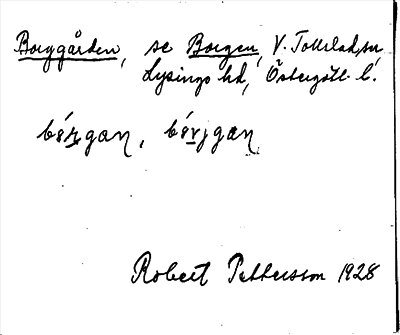 Borggården, se Borgen, V. Tollstad sn,
Lysings hd, Östergötl. l.
bórgan, bórjgan
Robert Pettersson 1928